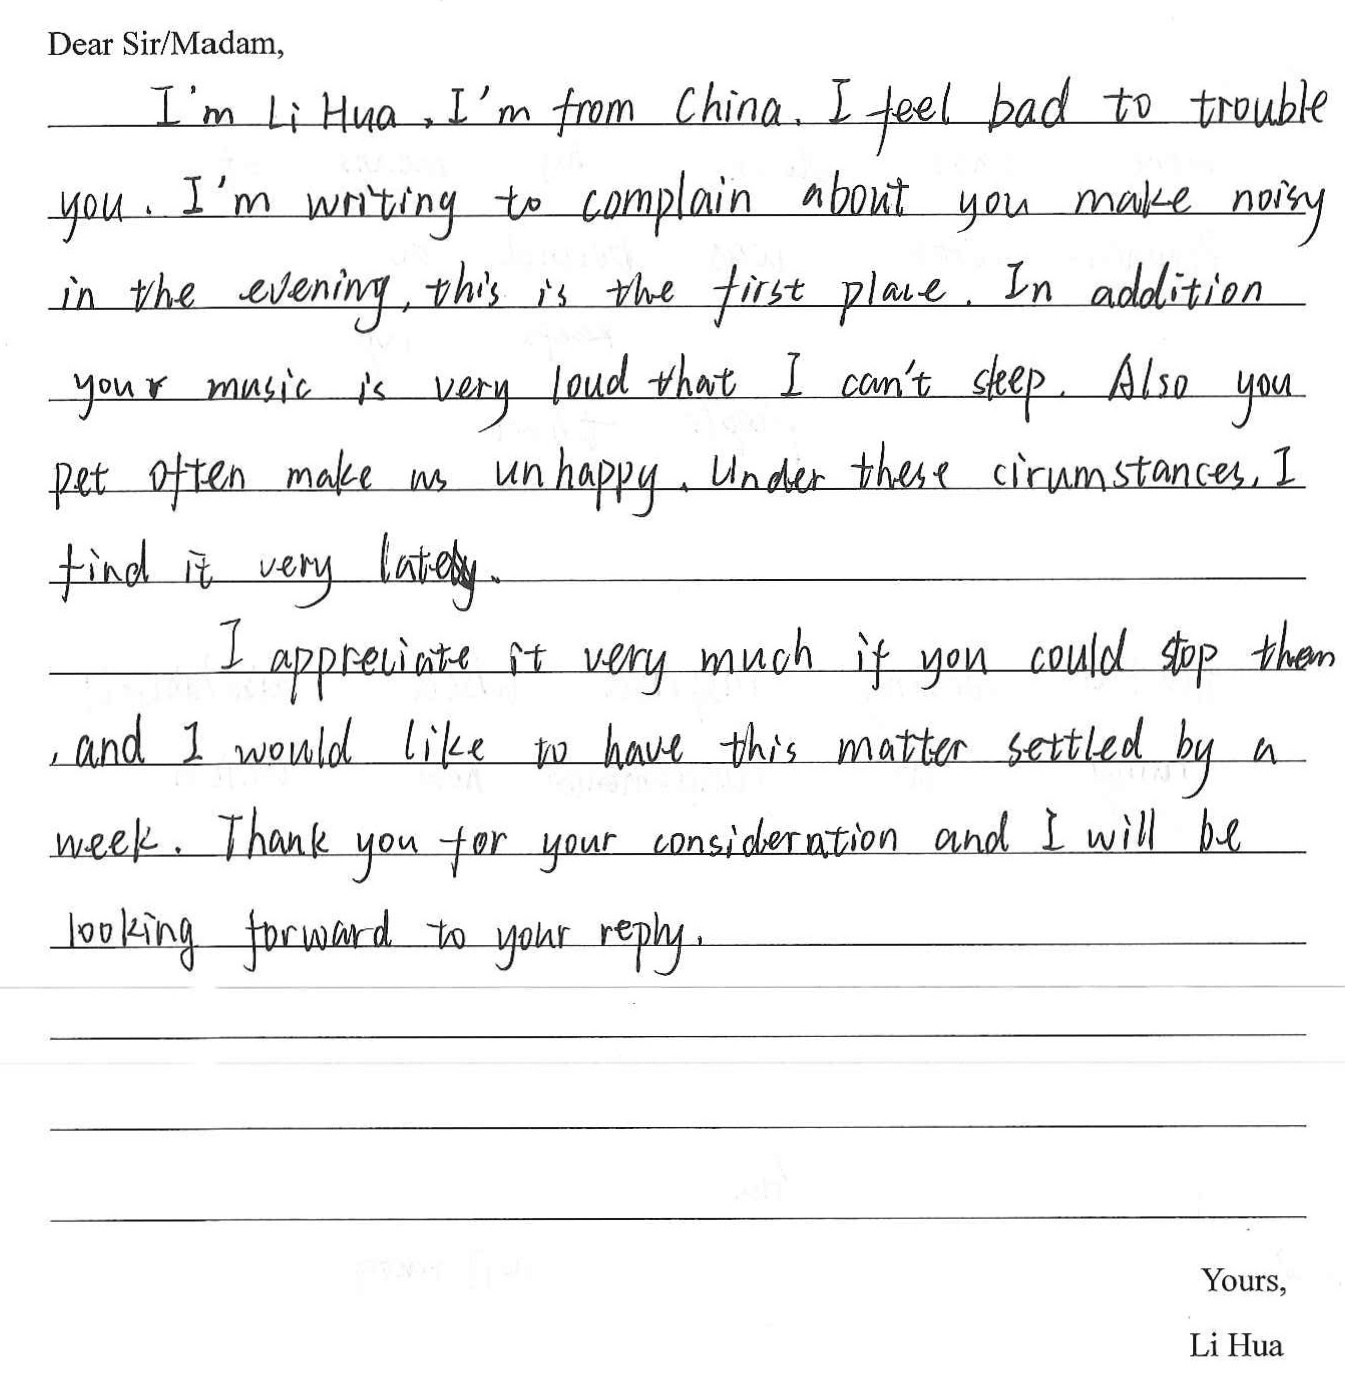 Dear Sir/Madam,
I'm Li Hua, I'm from China. I feel bad to trouble
you. I'm writing to complain about you make noisy
in the evening, this is the first place. In addition
your music is very loud that I can't sleep. Also you
pet often make us unhappy. Under these cirumstances, I
find it very lately.
I appreciate it very much if you could stop them
, and I would like to have this matter settled by a
week. Thank you for your consideration and I will be
looking forward to your reply.
Yours,
Li Hua